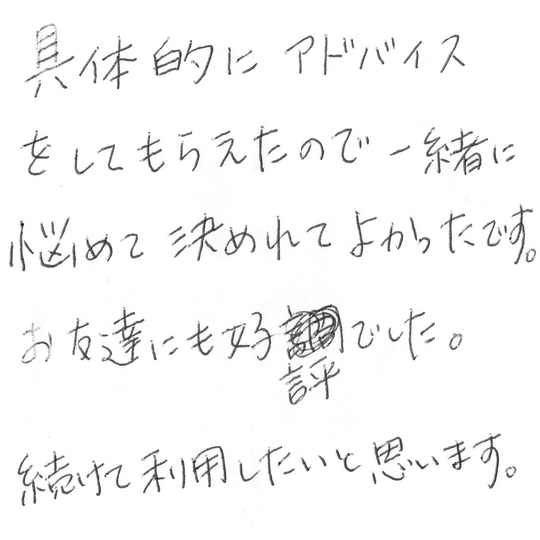 具体的に アドバイス
をしてもらえたので一緒に
悩めて 決めれてよかったです。
お友達にも好評でした。
続けて利用したいと思います。